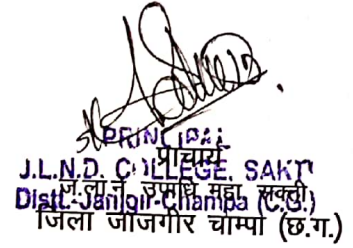 PRINCIPAL
प्राचार्य
J.L.N.D. COLLEGE, SAKTI
ज.ला.ने. उपाधि महा. सक्ती
Distt.-Janjgir-Champa (C.G.)
जिला जांजगीर चाम्पा (छ.ग.)